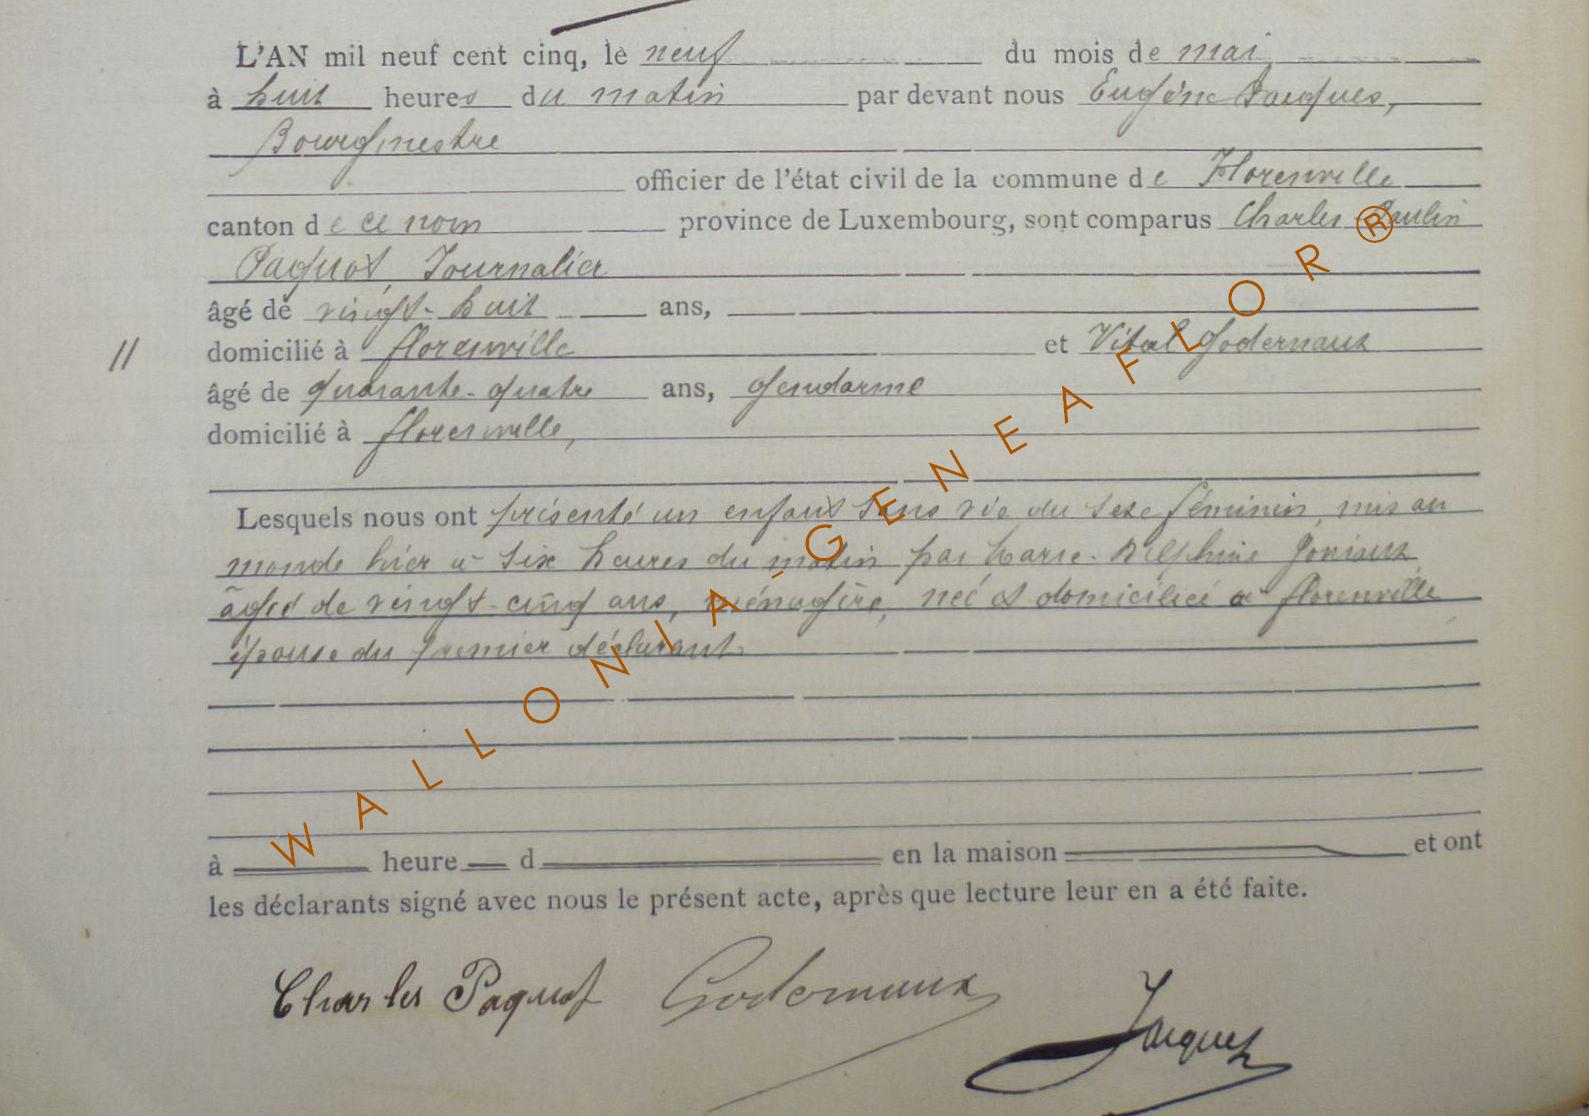 L'AN mil neuf cent cinq, le neuf du mois de mai
à huit heures du matin par devant nous Eugène Jacques,
Bourgmestre
officier de l'état civil de la commune de Florenville
canton de ce nom province de Luxembourg, sont comparus Charles Paulin
Paquot, Journalier
âgé de vingt-huit ans,
11 domicilié à florenville et Vital Godernaux
âgé de quarante-quatre ans, Gendarme
domicilié à florenville,
Lesquels nous ont présenté un enfant sans vie du sexe féminin, mis au
monde hier à six heures du matin par Marie-Delphine Goniaux
âgée de vingt-cinq ans, ménagère, née et domiciliée à florenville
épouse du premier déclarant
à heure d en la maison et ont
les déclarants signé avec nous le présent acte, après que lecture leur en a été faite.
Charles Paquot Godernaux
Jacques
WALLONIA-GENEAFLOR®